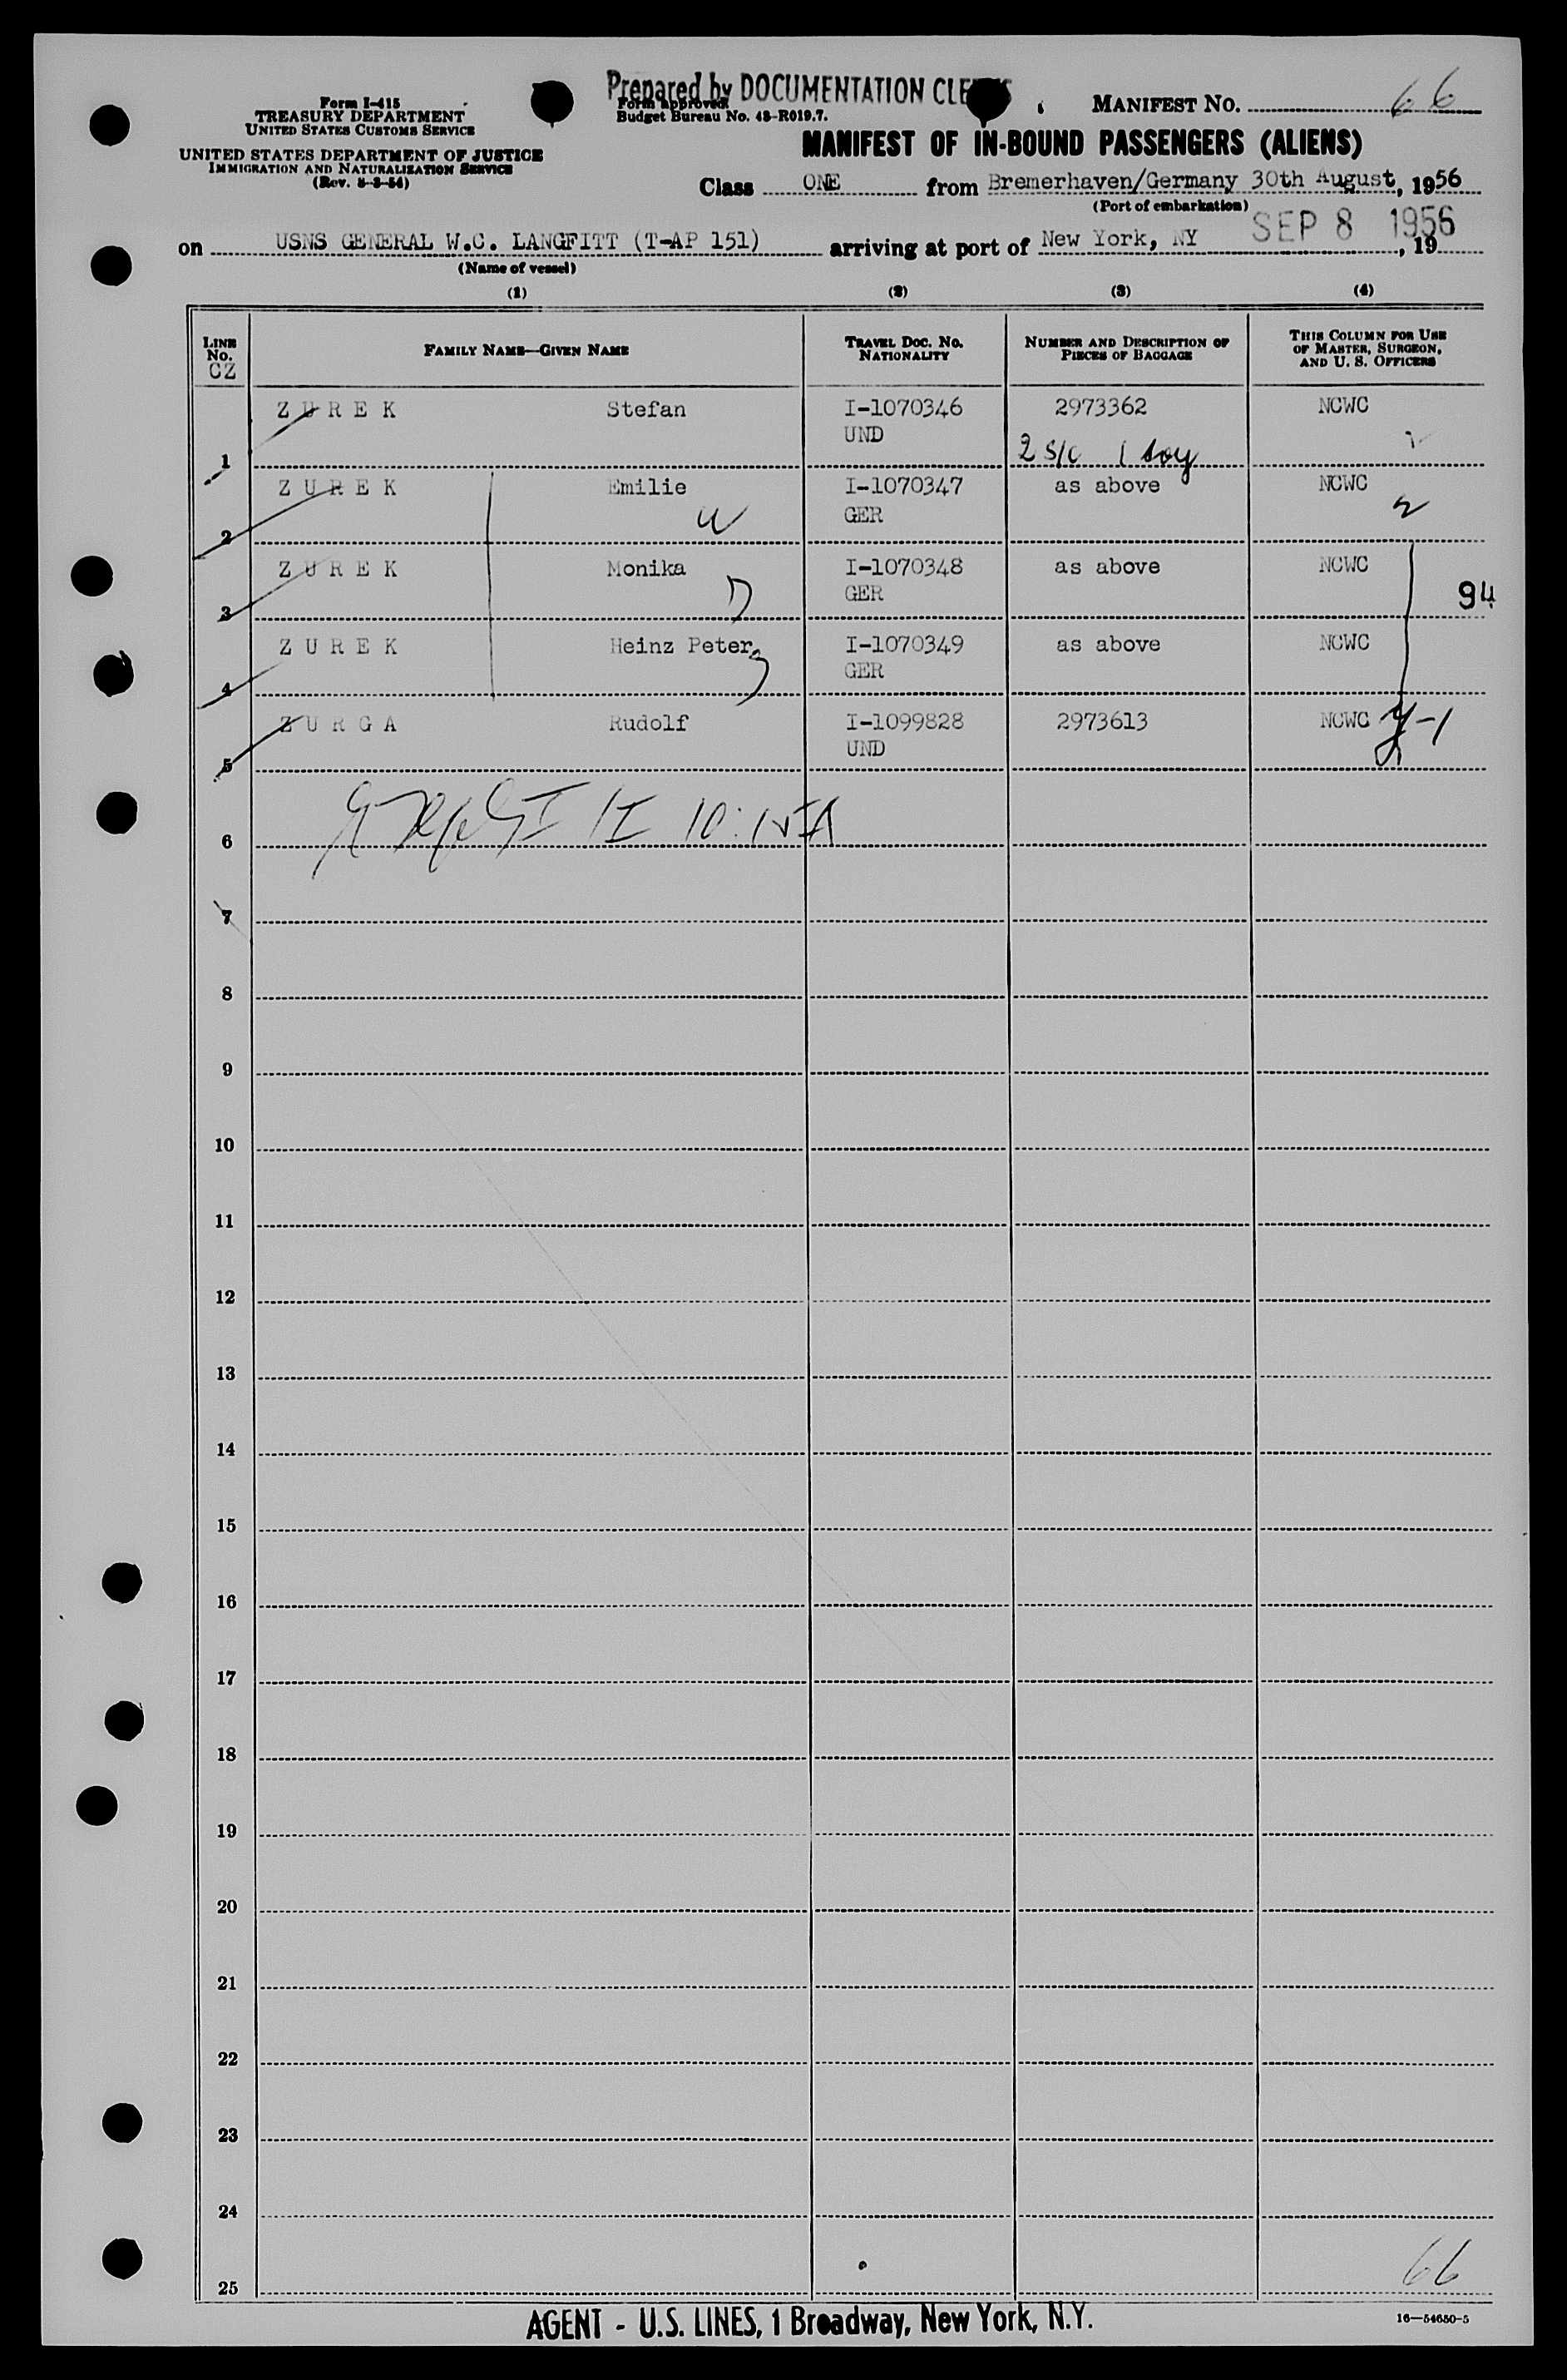 Prepared by DOCUMENTATION
Form I-415
TREASURY DEPARTMENT
UNITED STATES CUSTOMS SERVICE
UNITED STATES DEPARTMENT OF JUSTICE
IMMIGRATION AND NATURALIZATION SERVICE
Form approved
Budget Bureau No. 43-R019.7.
MANIFEST NO. 66
MANIFEST OF IN-BOUND PASSENGERS (ALIENS)
Class ONE from Bremerhaven/Germany 30th August, 1956
(Port of embarkation)
on USNS GENERAL W.C. LANGFITT (T-AP 151) arriving at port of New York, NY SEP 8 1956, 19
(Name of vessel)
(1) (2) (3) (4)
LINE No. CZ
FAMILY NAME—GIVEN NAME
TRAVEL DOC. NO. NATIONALITY
NUMBER AND DESCRIPTION OF PIECES OF BAGGAGE
THIS COLUMN FOR USE OF MASTER, SURGEON, AND U. S. OFFICERS
1 ZUREK Stefan I-1070346 UND 2973362 NCWC
2 S/C 1
2 ZUREK Emilie I-1070347 GER as above NCWC
W
3 ZUREK Monika I-1070348 GER as above NCWC
94
4 ZUREK Heinz Peter I-1070349 GER as above NCWC
5 ZURGA Rudolf I-1099828 UND 2973613 NCWC
6
7
8
9
10
11
12
13
14
15
16
17
18
19
20
21
22
23
24
25
66
AGENT - U.S. LINES, 1 Broadway, New York, N.Y.
16—54650-5